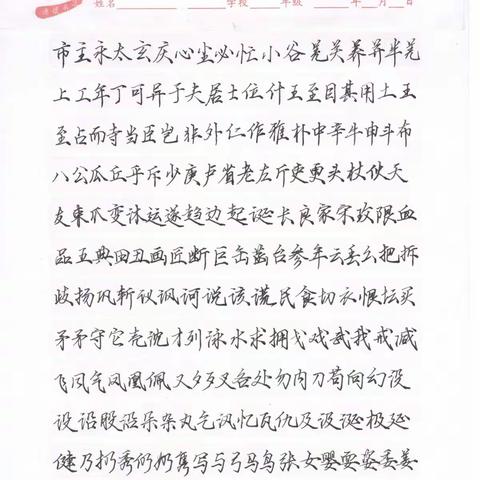 姓名 学校 年级 年 月 日
市主永太玄庆心尘必忙小谷羌关养异半羌
上工年丁可异于夫居士位什王至目其用土五
至占而寺当臣岂非外仁作雅朴中辛牛申斗布
八公瓜丘乎斥少庚卢省老左斤史更头杖伏天
友束爪变沐运遂趋边起诞长良家宋玫限血
品五典田丑画匠断巨缶蓝台参年云丢么把拆
歧扬巩斩议讽诃说该谎民食切衣恨坛买
矛矛守它壳沈才列泳水求拥戈戏武我戒减
飞风气凤凰佩又夕歹叉各处勿肉刀苟向幻设
设沿股没朵杂丸乞讯忆瓦仇及设涎极延
健乃扔秀仍奶隽写与弓马鸟张女婴耍姿委姜